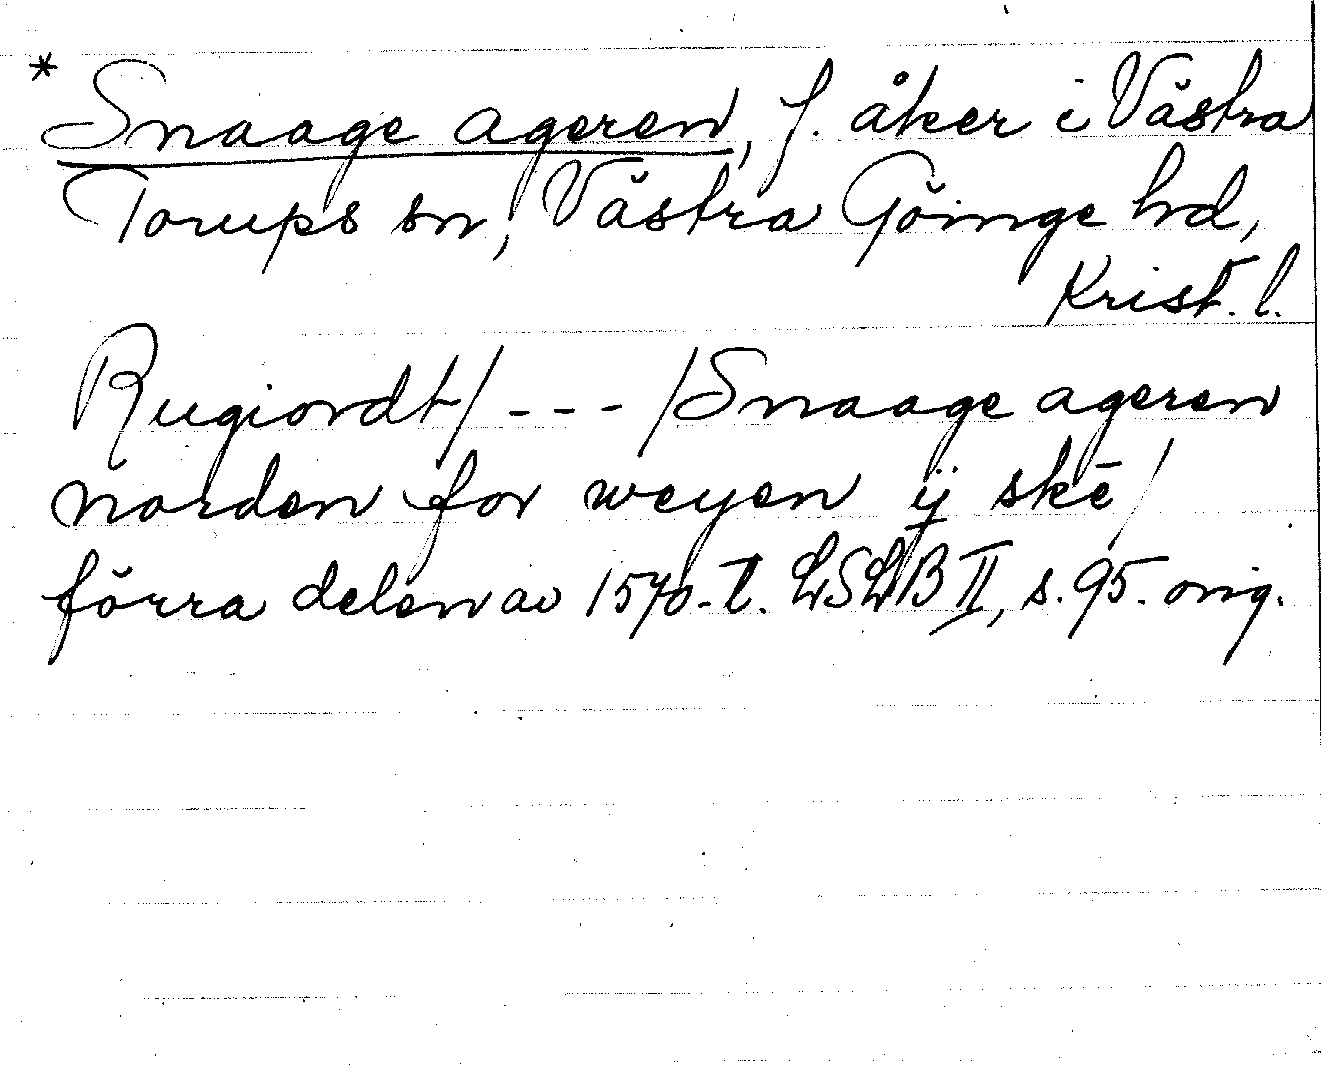 * Snaage ageren, f. åker i Västra
Torups sn, Västra Göinge hd,
Krist. l.
Rugiordt / - - - / Snaage ageren
norden for weyen ij skē /
förra delen av 1570-t. LSLB II, s. 95. orig.